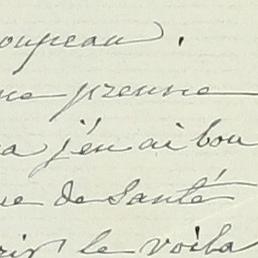 oupeau.
ne prenne
a j'en ai bou
ue de Santé
rir le voila